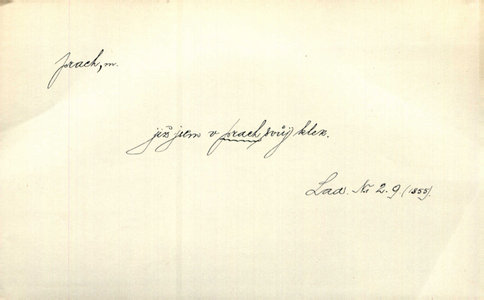 prach, m.
již jsem v prach svůj klek.
Lad. Ni 2. 9 (1855).